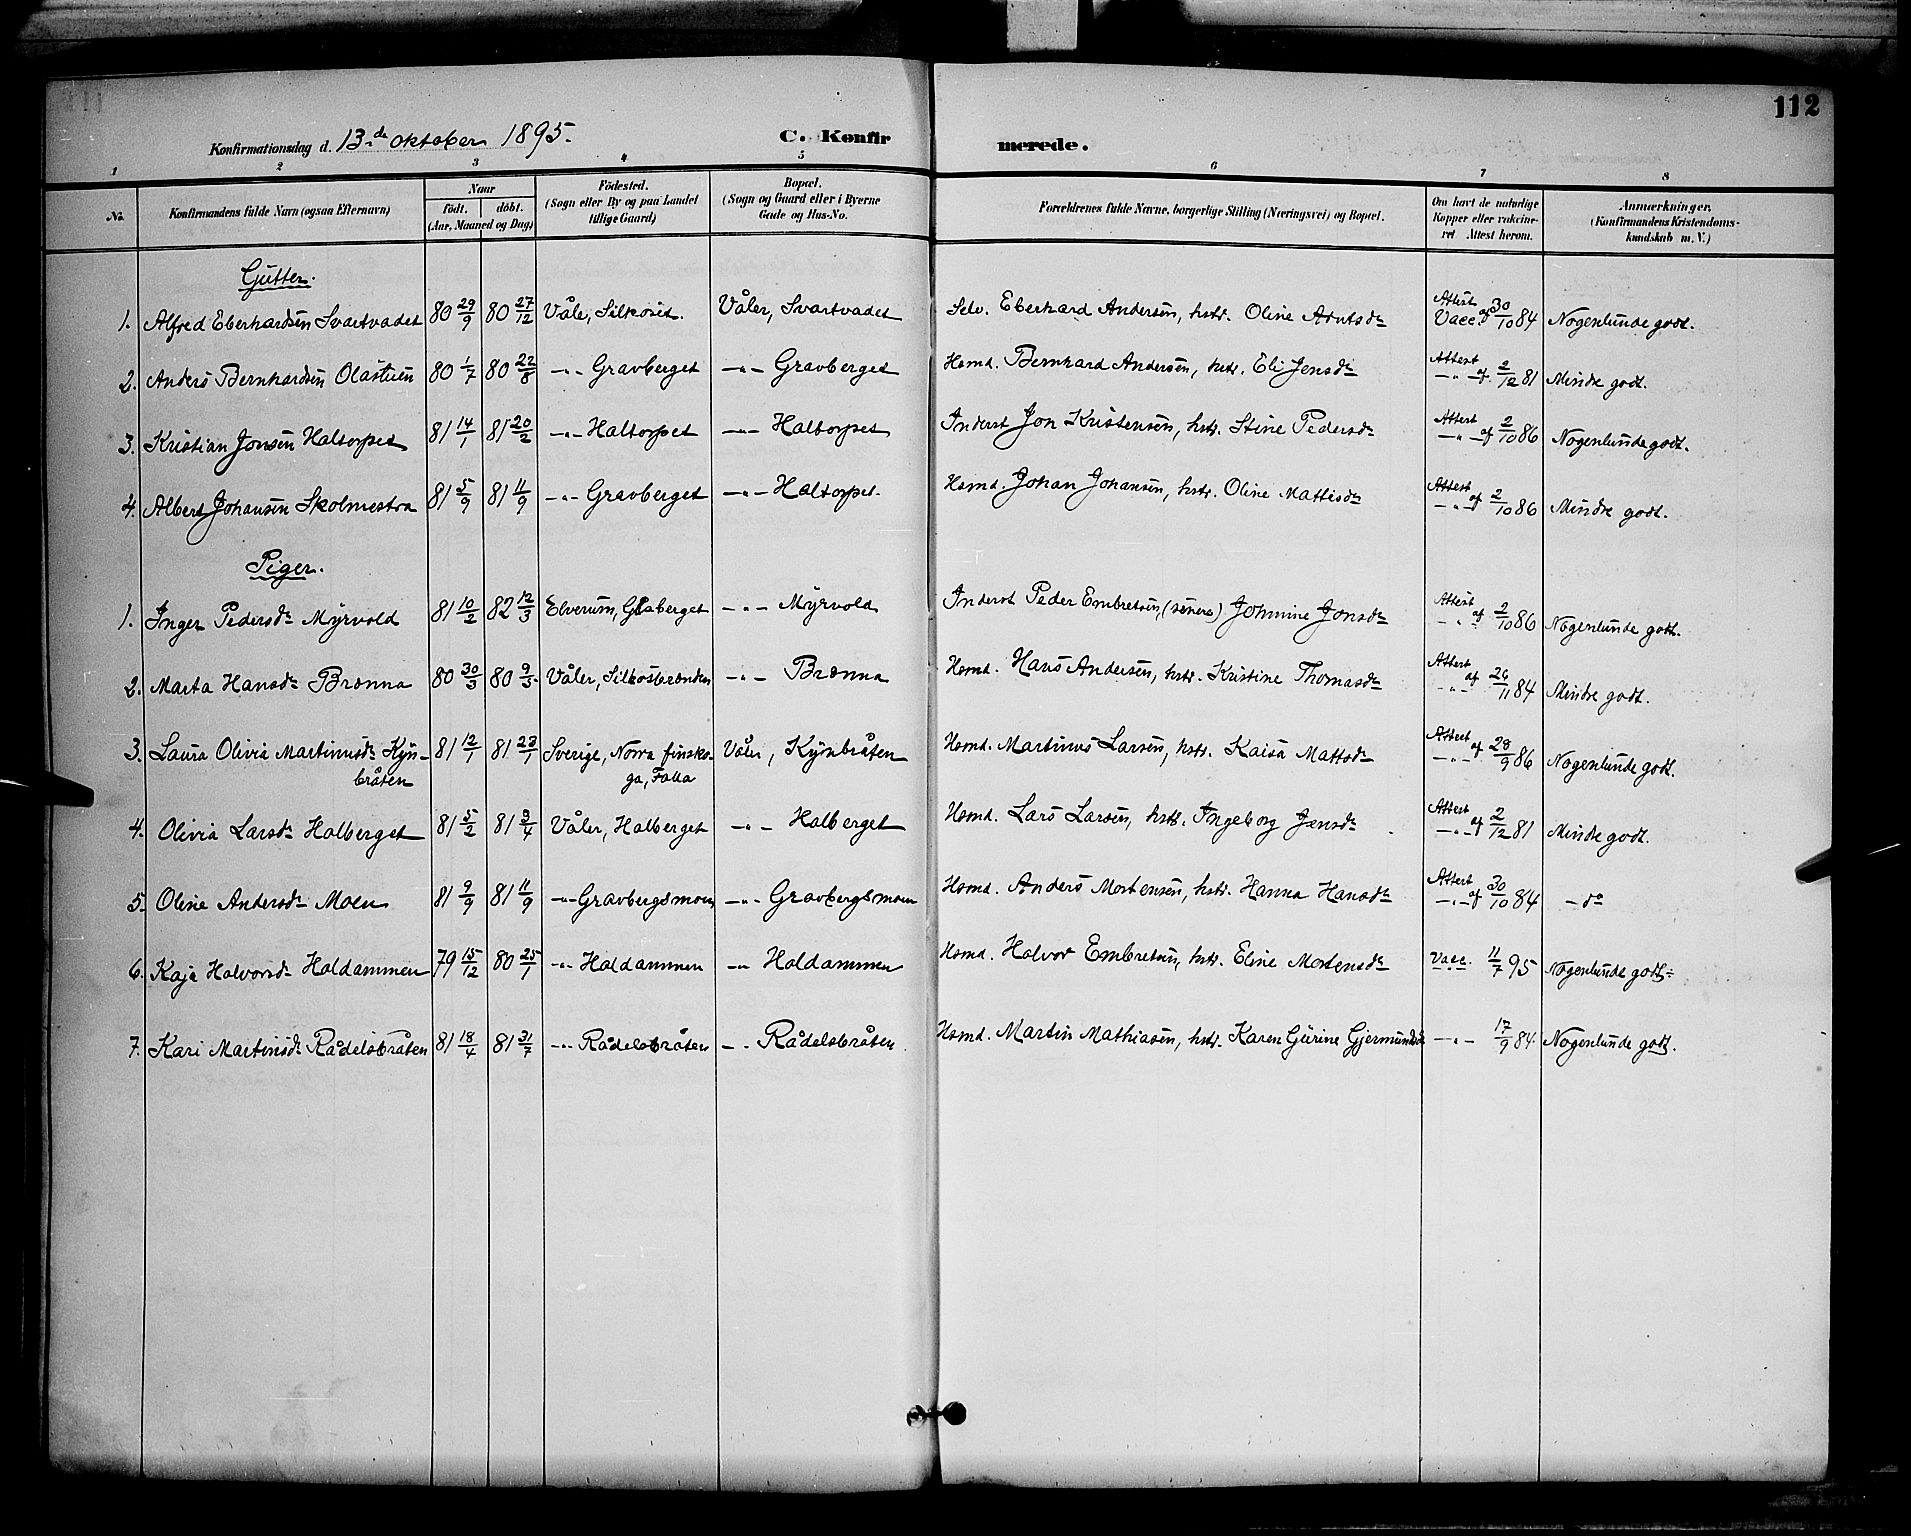 112
Konfirmationsdag d. 13.de oktober 1895.
C. Konfirmerede.
1 2 3 4 5 6 7 8
No. | Konfirmandens fulde Navn (ogsaa Efternavn) | Naar födt. döbt. (Aar, Maaned og Dag) | Födested. (Sogn eller By og paa Landet tillige Gaard) | Bopæl. (Sogn og Gaard eller i Byerne Gade og Hus-No. | Forældrenes fulde Navne, borgerlige Stilling (Næringsvei) og Bopæl. | Om havt de naturlige Kopper eller vakcineret Attest herom. | Anmærkninger, (Konfirmandens Kristendomskundskab m. V.)
Gutter.
1. Alfred Eberhardsen Svartvadet 80 29/9 80 27/12 Våle, Silkoset. Våler, Svartvadet Selv. Eberhard Andersen, hstr. Oline Arntsdr Attest Vacc. af 30/10 84 Nogenlunde godt.
2. Anders Bernhardsen Olastuen 80 1/7 80 22/8 -"- Gravberget -"- Gravberget Hsmd. Bernhard Andersen, hstr. Eli Jensdr Attest -"- af 2/12 81 Mindre godt.
3. Kristian Jonsen Haltorpet 81 14/1 81 20/2 -"- Haltorpet -"- Haltorpet Inderst Jon Kristensen, hstr. Stine Pedersdr Attest -"- af 2/10 86 Nogenlunde godt.
4. Albert Johansen Skolmestra 81 5/9 81 11/9 -"- Gravberget -"- Haltorpet. Hsmd. Johan Johansen, hstr. Oline Mattisdr Attest -"- af 2/10 86 Mindre godt.
Piger.
1. Inger Pedersdr Myrvold 81 10/2 82 12/3 Elverum, Glaberget -"- Myrvold Inderst Peder Embretsen, (senere) Johnnine Jonsdr Attest -"- af 2/10 86 Nogenlunde godt.
2. Marta Hansdr Brønna 80 30/3 80 9/5. Våler, Silkosbrænden -"- Brønna Hsmd. Hans Andersen, hstr. Kristine Thomasdr Attest -"- af 26/11 84 Mindre godt.
3. Laura Olivia Martinusdr Kyn- 81 12/1 81 23/1 Sverige, Norra finsko- Våler, Kynbråten Hsmd. Martinus Larsen, hstr. Kaisa Mattsdr Attest -"- af 28/9 86 Nogenlunde godt.
bråten ga, Falla
4. Olivia Larsdr Halberget 81 5/2 81 3/4 Våler, Halberget -"- Halberget Hsmd. Lars Larsen, hstr. Ingeborg Jensdr Attest -"- af 2/12 81 Mindre godt.
5. Oline Andersdr Moen 81 9/9 81 11/9 -"- Gravbergsmoen -"- Gravbergsmoen Hsmd. Anders Mortensen, hstr. Hanna Hansdr Attest -"- af 30/10 84 - do
6. Kaja Halvorsdr Haldammen 79 15/12 80 25/1 -"- Haldammen -"- Haldammen Hsmd. Halvor Embretsen, hstr. Eline Mortensdr Vacc. 11/7 95 Nogenlunde godt.
7. Kari Martinsdr Rådelsbråten 81 18/4 81 31/7 -"- Rådelsbråten -"- Rådelsbråten Hsmd. Martin Mathiasen, hstr. Karen Gurine Gjermundsdr -"- 17/9 84. Nogenlunde godt.